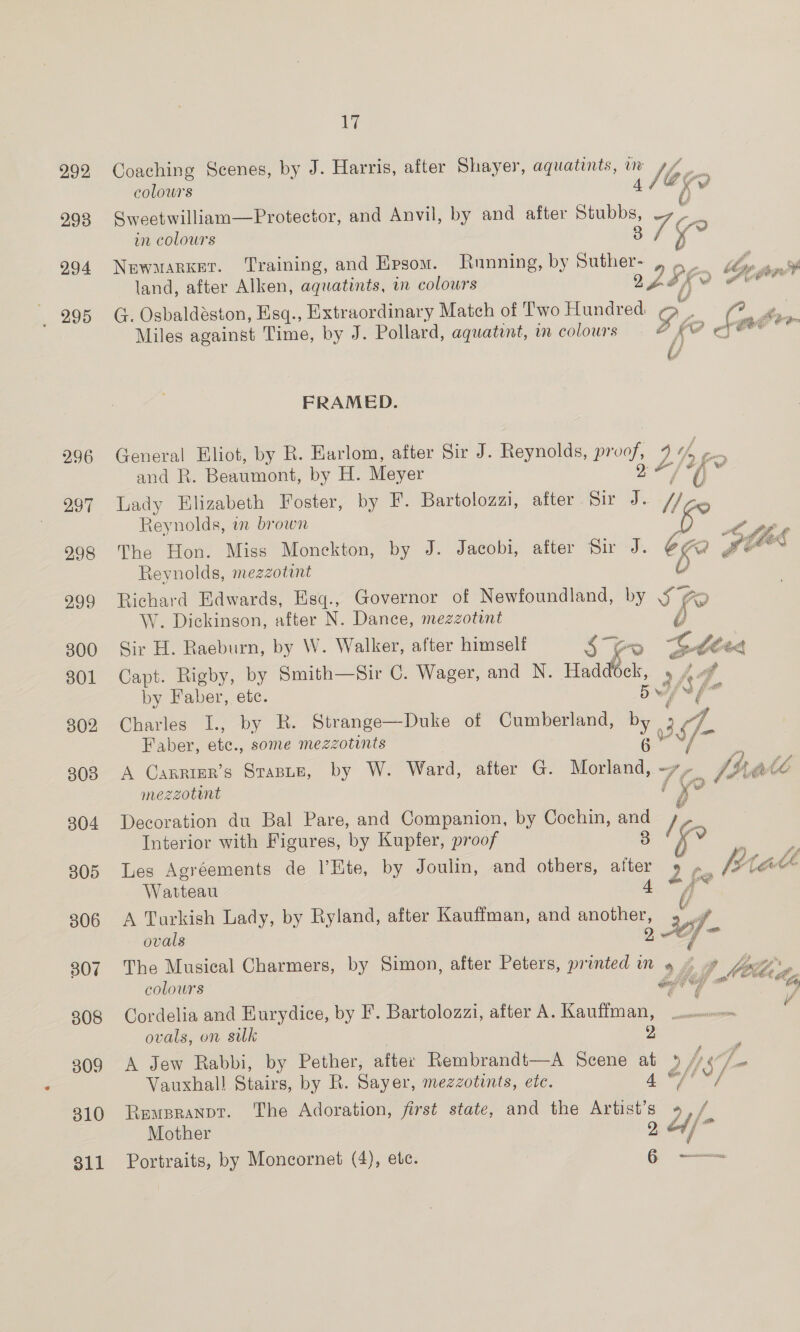 17
292 Coaching Scenes, by J. Harris, after Shayer, aquatints, in
colours 4
293 Sweetwilliam—Protector, and Anvil, by and after Stubbs,
in colours 3
294 Newmarket. Training, and Epsom. Running, by Suther-
land, after Alken, aquatints, in colours 2
295 G. Osbaldeston, Esq., Extraordinary Match of Two Hundred
Miles against Time, by J. Pollard, aquatint, in colours
FRAMED.
296 General Eliot, by R. Earlom, after Sir J. Reynolds, proof,
and R. Beaumont, by H. Meyer 2
297 Lady Elizabeth Foster, by F. Bartolozzi, after Sir J.
Reynolds, in brown
298 The Hon. Miss Monckton, by J. Jacobi, after Sir J.
Reynolds, mezzotint
299 Richard Edwards, Esq., Governor of Newfoundland, by
W. Dickinson, after N. Dance, mezzotint
300 Sir H. Raeburn, by W. Walker, after himself
301 Capt. Rigby, by Smith—Sir C. Wager, and N. Haddock,
by Faber, etc. 5
302 Charles I., by R. Strange—Duke of Cumberland, by
Faber, etc., some mezzotints 6
303 A Carrier's Stable, by W. Ward, after G. Morland,
mezzotint
304 Decoration du Bal Pare, and Companion, by Cochin, and
Interior with Figures, by Kupfer, proof 3
305 Les Agréements de l'Ete, by Joulin, and others, after
Watteau 4
306 A Turkish Lady, by Ryland, after Kauffman, and another,
ovals 2
307 The Musical Charmers, by Simon, after Peters, printed in
colours
308 Cordelia and Eurydice, by F. Bartolozzi, after A. Kauffman,
ovals, on silk 2
309 A Jew Rabbi, by Pether, after Rembrandt—A Scene at
Vauxhall Stairs, by R. Sayer, mezzotints, etc. 4
310 Rembrandt. The Adoration, first state, and the Artist's
Mother 2
311 Portraits, by Moncornet (4), etc. 6